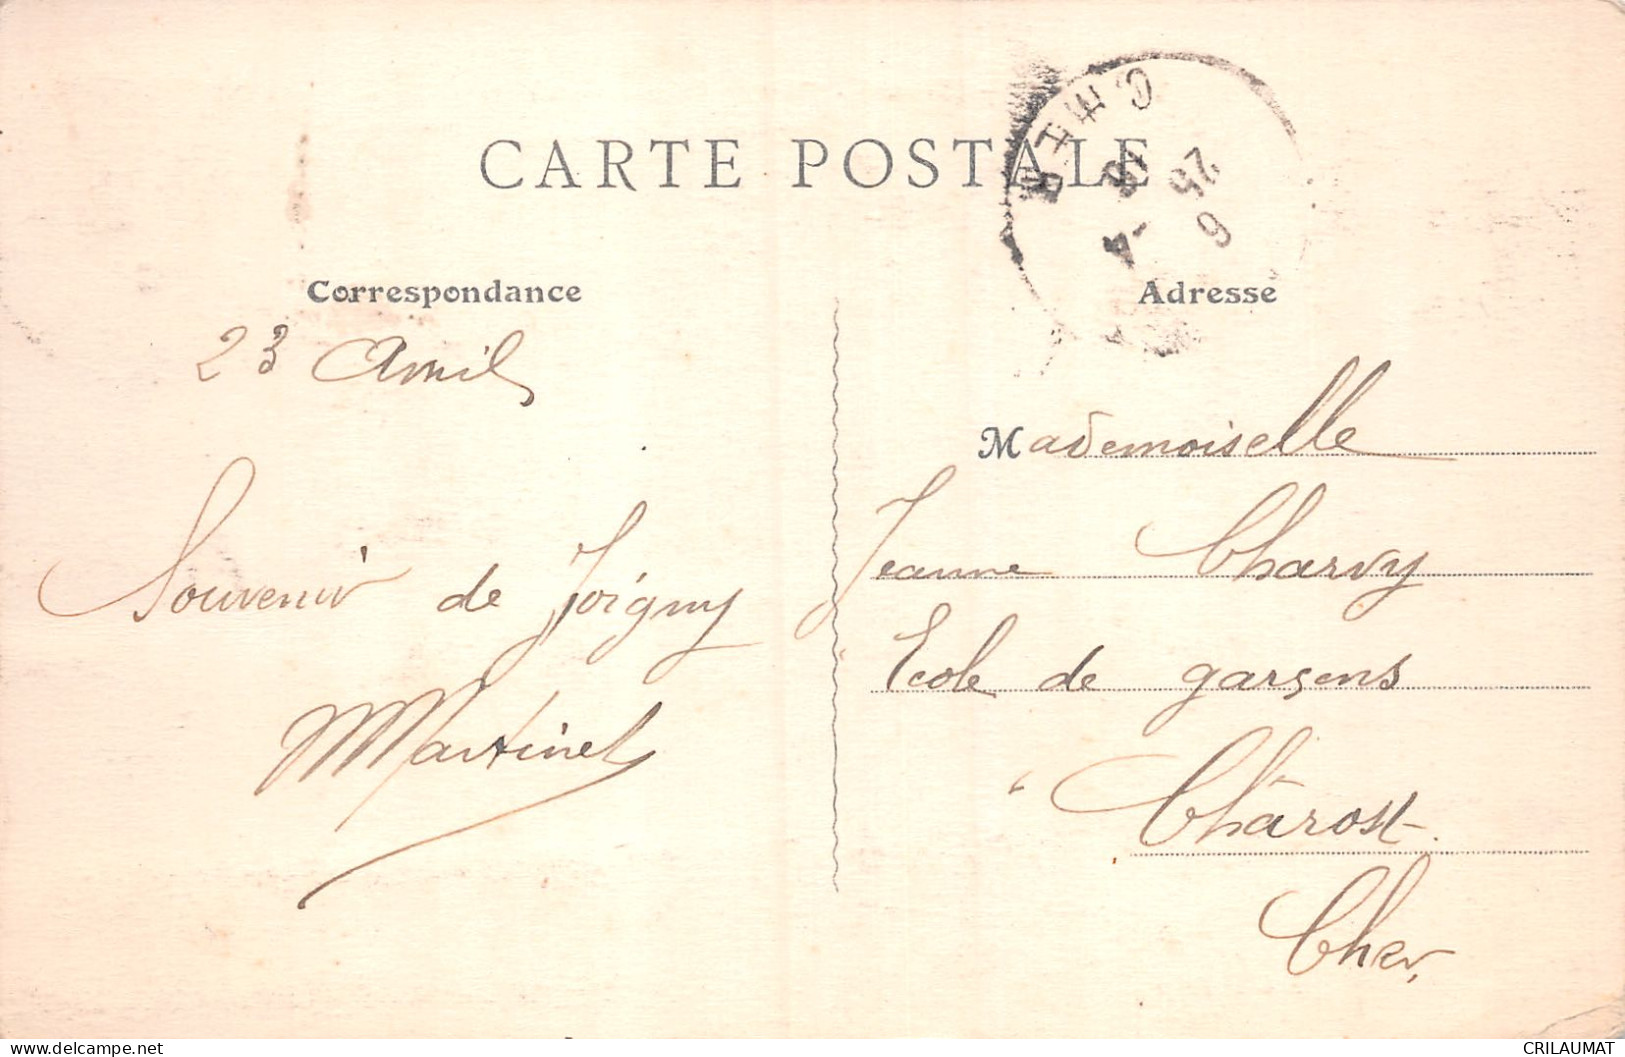 CARTE POSTALE
CHER
18
25
-4
9
Correspondance
23 Avril
Souvenir de Joigny
Martinet
Adresse
Mademoiselle
Jeanne Charvy
Ecole de garçons
Chârost
Cher
CRILAUMAT
delcampe.net